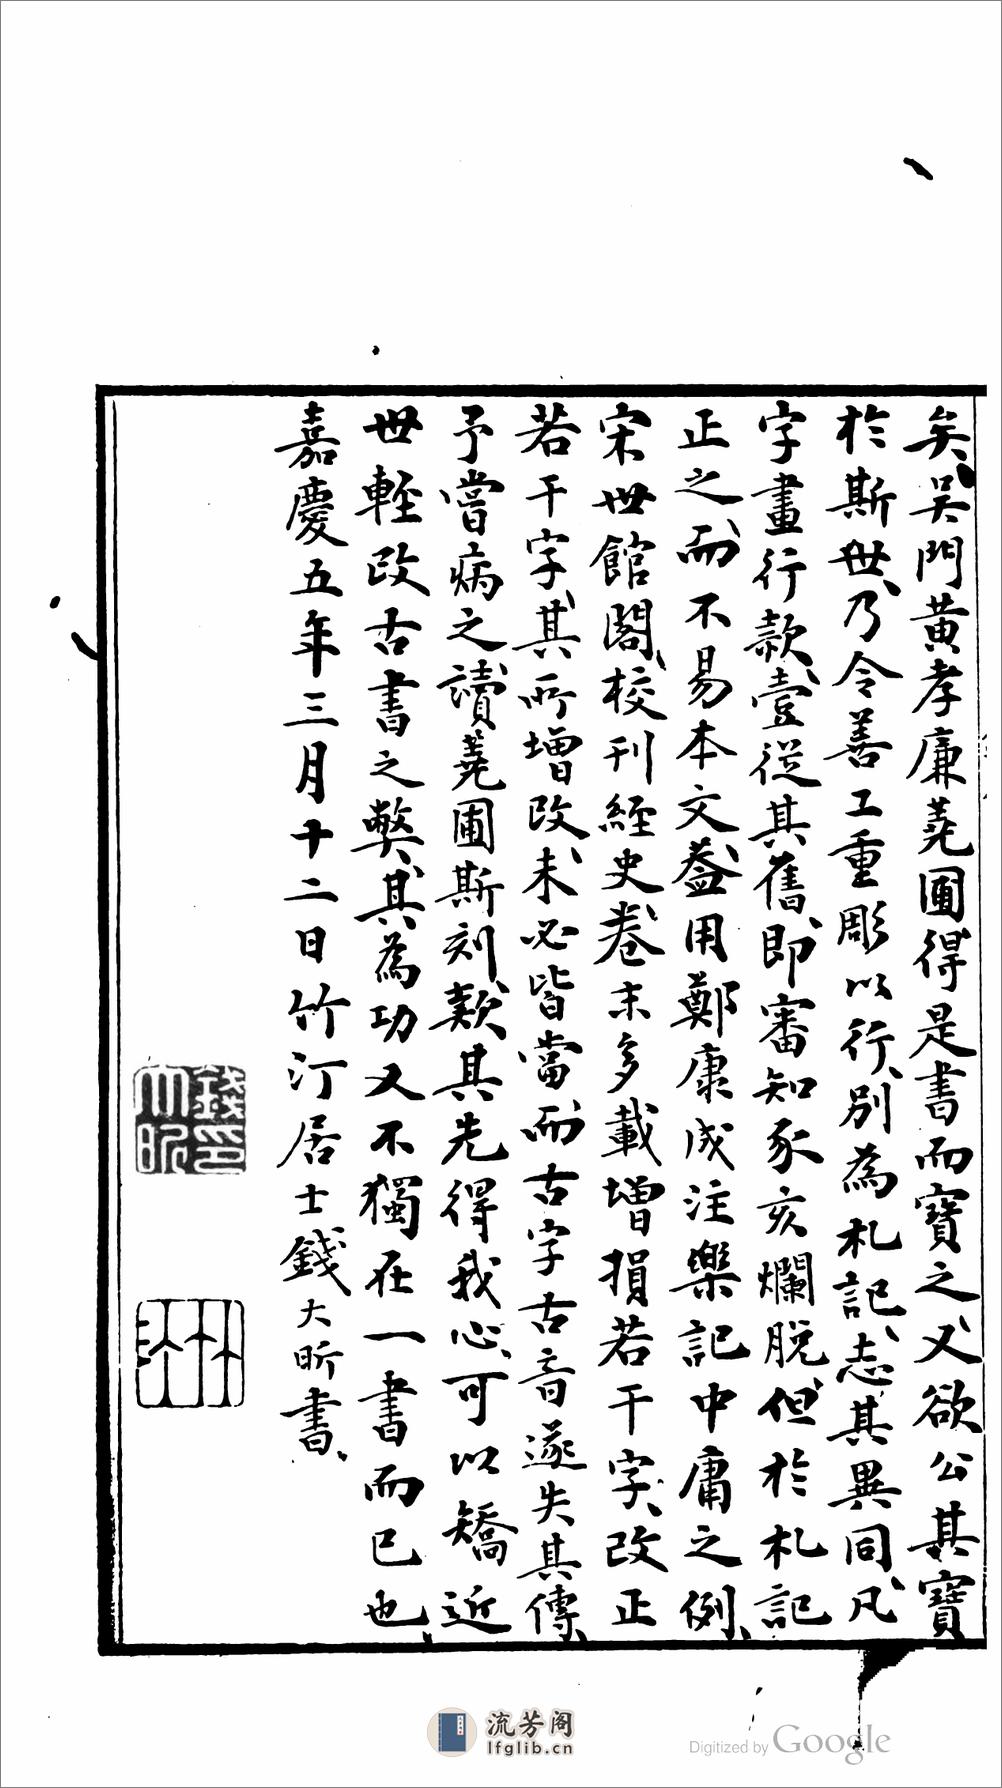 矣吳門黃孝廉蕘圃得是書而寶之又欲公其寶
於斯世乃令善工重彫以行別為札記志其異同凡
字畫行款壹從其舊即審知豕亥爛脫但於札記
正之而不易本文蓋用鄭康成注樂記中庸之例
宋世館閣校刊經史卷末多載增損若干字改正
若干字其所增改未必皆當而古字古音遂失其傳
予嘗病之讀蕘圃斯刻歎其先得我心可以矯近
世輕改古書之弊其為功又不獨在一書而已也
嘉慶五年三月十二日竹汀居士錢大昕書
錢印大昕
竹汀
流芳阁
lfglib.cn
Digitized by Google